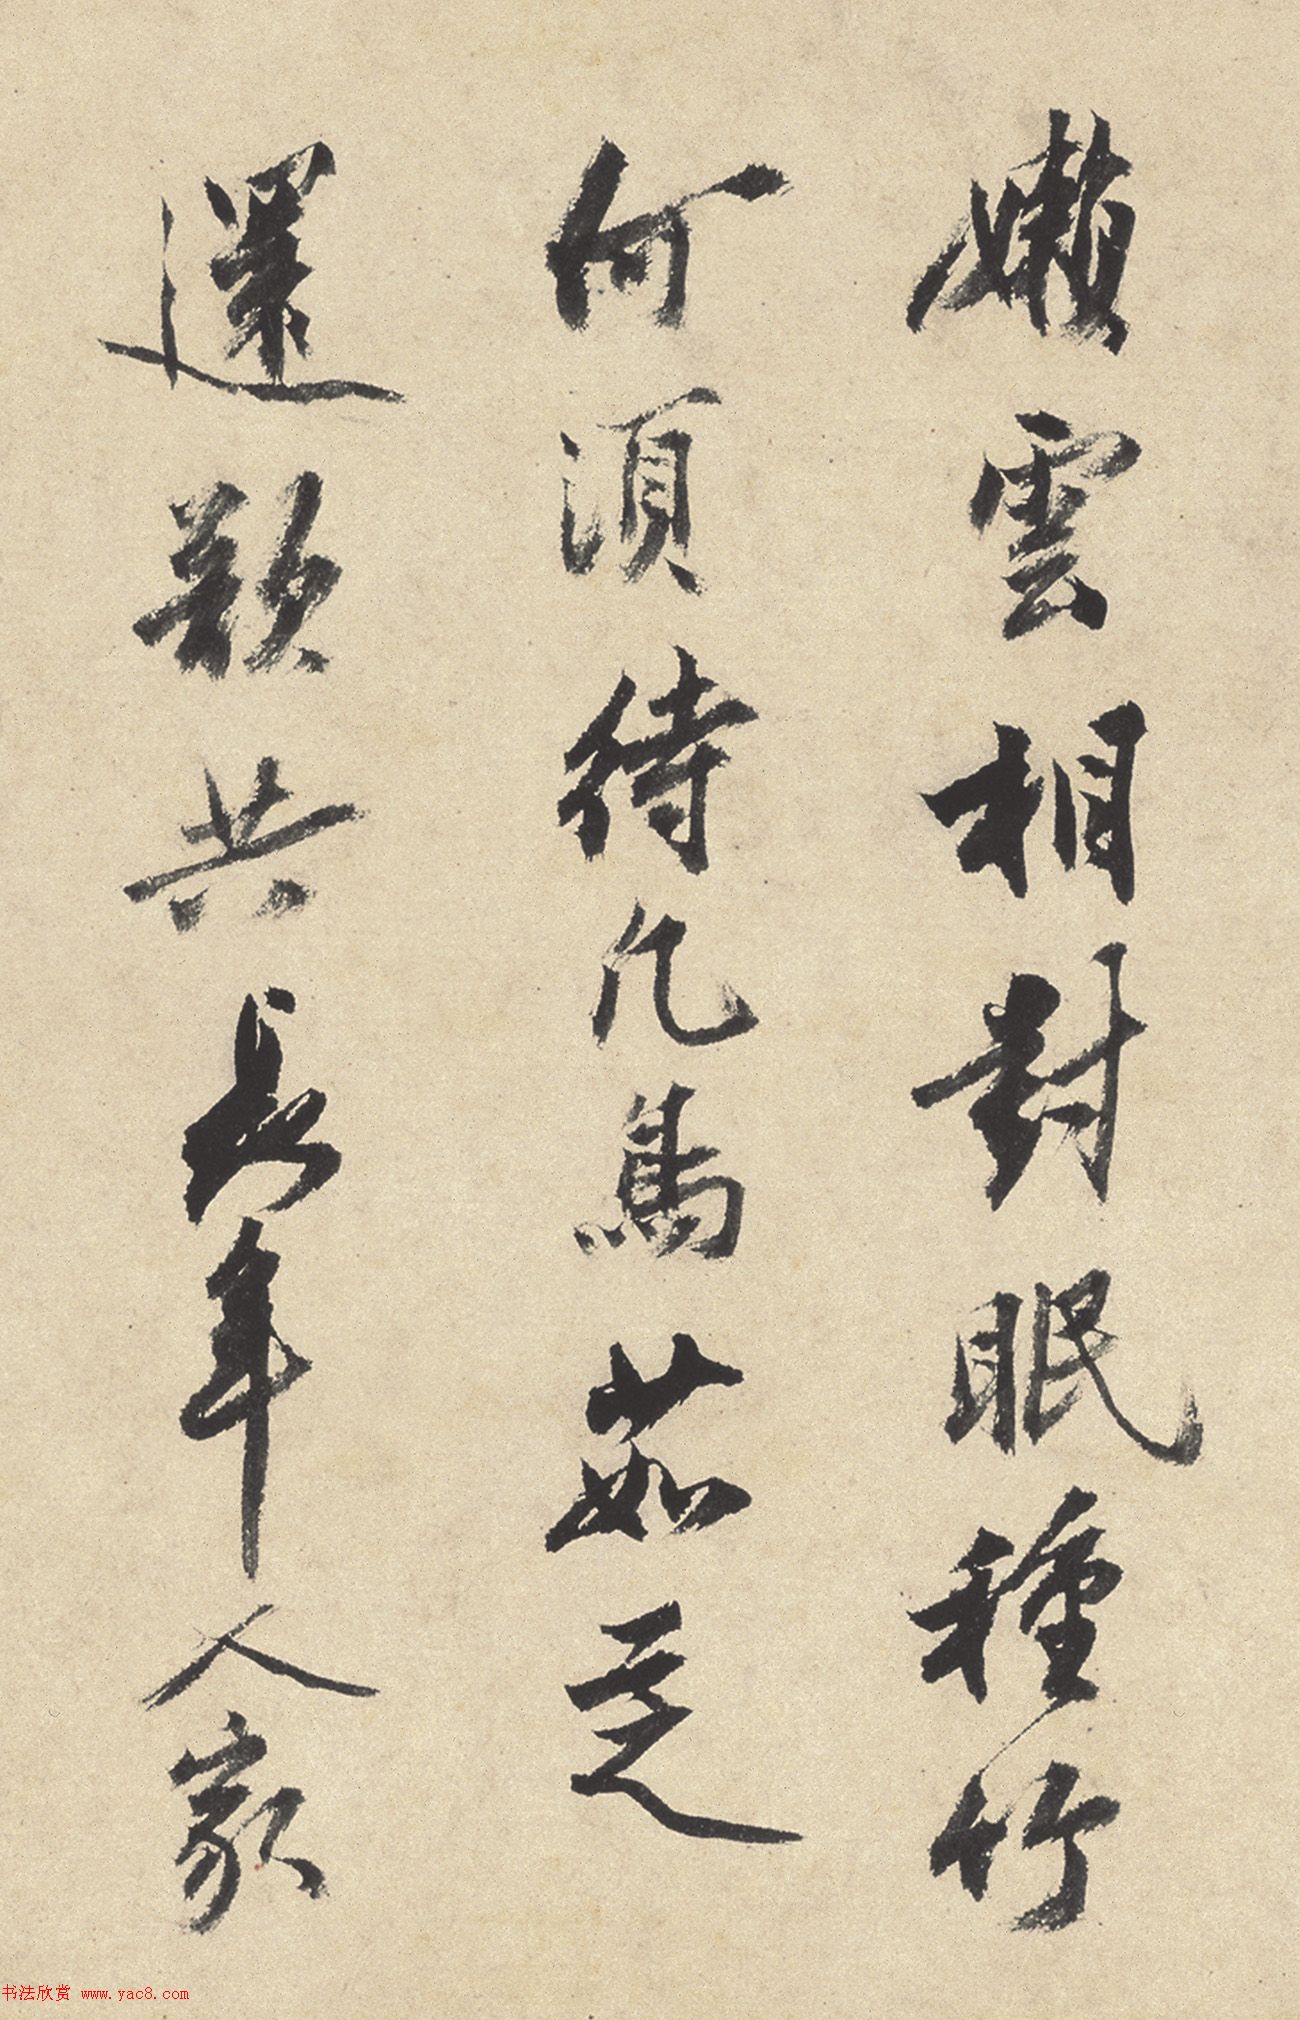 嬾雲相對眠種竹
何須待凡馬茹芝
還歎共長年人家
书法欣赏 www.yac8.com